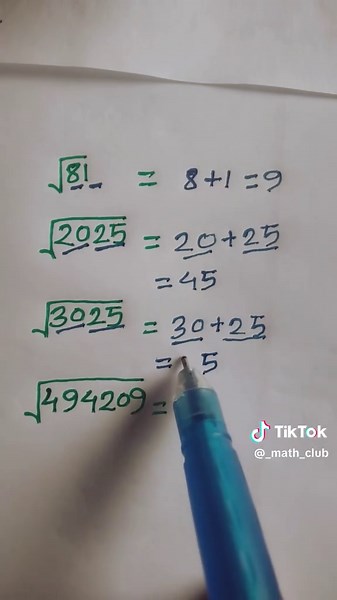 √81 = 8+1=9
√2025 = 20+25
=45
√3025 = 30+25
= 5
√494209 =
TikTok
@_math_club